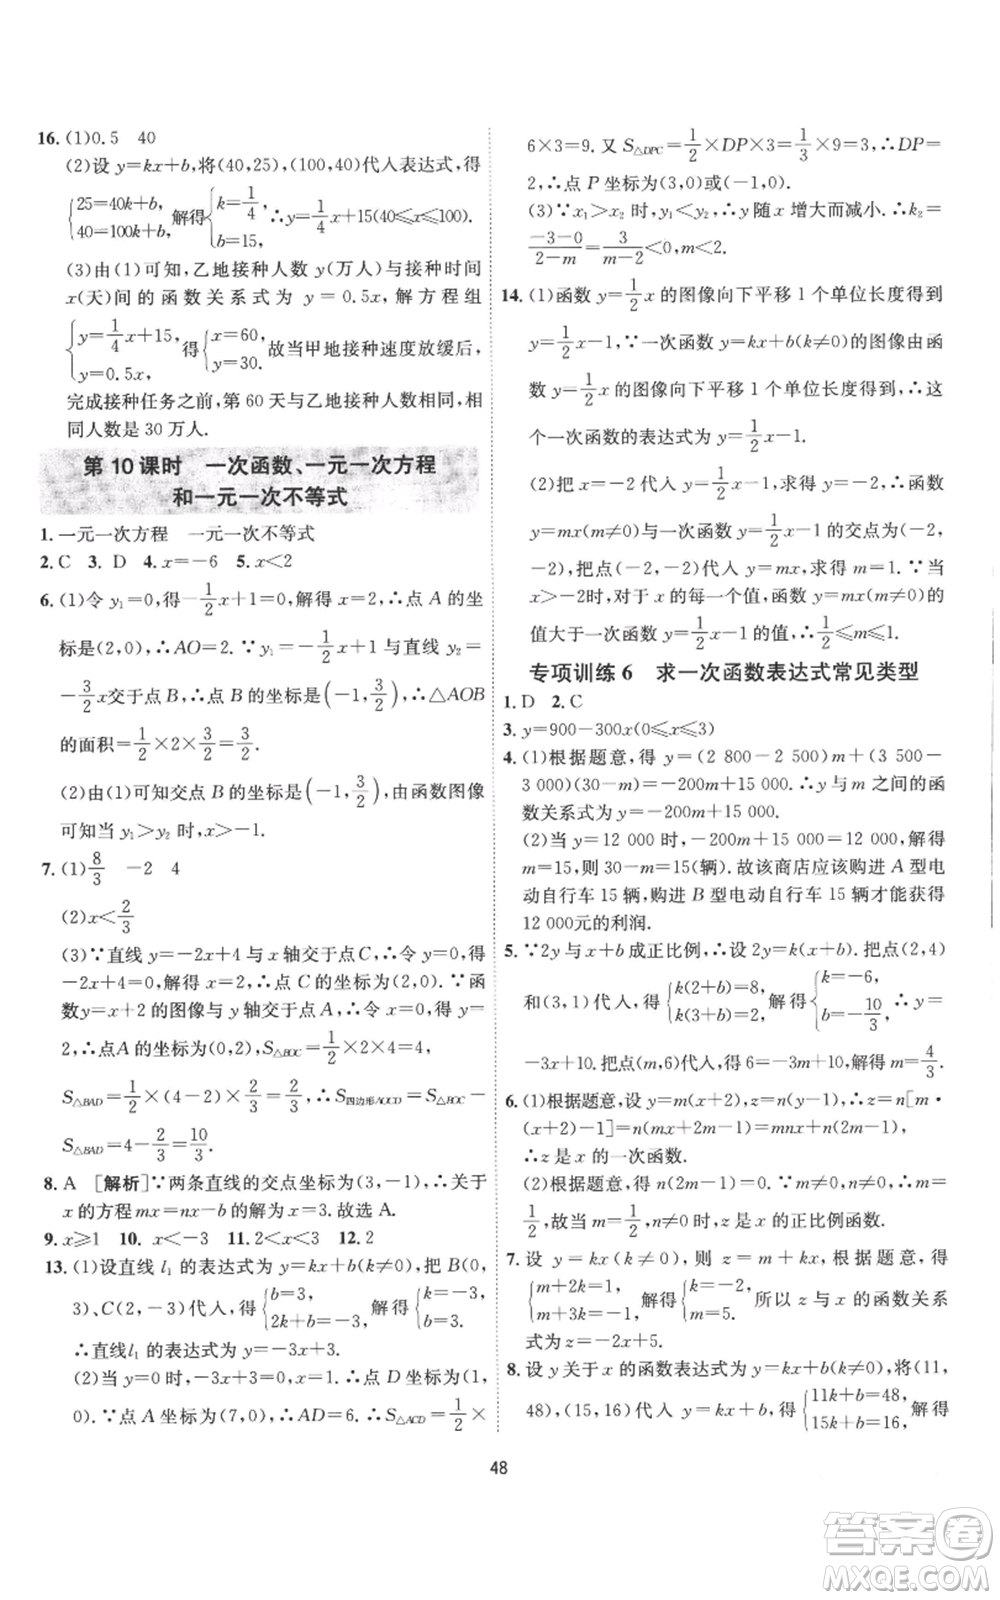 16. (1)0.5　40
(2)设 y=kx+b,将(40,25),(100,40)代人表达式,得
{25=40k+b, 40=100k+b, 解得 {k=1/4, b=15, ∴y=1/4x+15(40≤x≤100).
(3)由(1)可知,乙地接种人数 y(万人)与接种时间
x(天)间的函数关系式为 y=0.5x,解方程组
{y=1/4x+15, y=0.5x, 得 {x=60, y=30. 故当甲地接种速度放缓后,
完成接种任务之前,第 60 天与乙地接种人数相同,相
同人数是 30 万人.
第 10 课时　一次函数、一元一次方程
和一元一次不等式
1. 一元一次方程　一元一次不等式
2. C　3. D　4. x=-6　5. x<2
6. (1)令 y₁=0,得-1/2x+1=0,解得 x=2,∴点 A 的坐
标为(2,0),∴AO=2.∵y₁=-1/2x+1与直线 y₂=
-3/2x交于点 B,∴点 B 的坐标为(-1,3/2),∴△AOB
的面积=1/2×2×3/2=3/2.
(2)由(1)可知交点 B 的坐标为(-1,3/2),由函数图像
可知当 y₁>y₂ 时,x>-1.
7. (1)8/3　-2　4
(2)x<2/3
(3)∵直线 y=-2x+4与 x 轴交于点C,∴令 y=0,得
-2x+4=0,解得 x=2,∴点 C 的坐标为(2,0).∵函
数y=x+2的图像与 y 轴交于点 A,∴令 x=0,得 y=
2,∴点A 的坐标为(0,2),S△BOC=1/2×2×4=4,
S△BAD=1/2×(4-2)×2/3=2/3,∴S四边形AOCD=S△BOC-
S△BAD=4-2/3=10/3.
8. A　[解析]∵两条直线的交点坐标为(3,-1),∴关于
x 的方程 mx=nx-b 的解为 x=3.故选 A.
9. x≥1　10. x<-3　11. 2<x<3　12. 2
13. (1)设直线 l₁ 的表达式为 y=kx+b(k≠0),把 B(0,
3)、C(2,-3)代人,得 {b=3, 2k+b=-3, 解得 {k=-3, b=3.
∴直线l₁ 的表达式为 y=-3x+3.
(2)当y=0时,-3x+3=0,解得 x=1,∴点 D 坐标为(1,
0).∵点 A 坐标为(7,0),∴AD=6.∴S△ACD=1/2×
6×3=9.又 S△DPC=1/2×DP×3=1/3×9=3,∴DP=
2,∴点 P 坐标为(3,0)或(-1,0).
(3)∵x₁>x₂ 时,y₁<y₂,∴y 随 x 增大而减小.∴k₂=
-3-0/2-m=3/m-2<0,m<2.
14. (1)函数 y=1/2x 的图像向下平移 1 个单位长度得到
y=1/2x-1.∵一次函数 y=kx+b(k≠0)的图像由函
数 y=1/2x 的图像向下平移 1 个单位长度得到,∴这
个一次函数的表达式为 y=1/2x-1.
(2)把 x=-2 代人 y=1/2x-1,得 y=-2.∴函数
y=mx(m≠0)与一次函数 y=1/2x-1 的交点为(-2,
-2),把点(-2,-2)代人 y=mx,求得 m=1.∵当
x>-2时,对于 x 的每一个值,函数 y=mx(m≠0)的
值大于一次函数 y=1/2x-1 的值,∴1/2≤m≤1.
专项训练 6　求一次函数表达式常见类型
1. D　2. C
3. y=900-300x(0≤x≤3)
4. (1)根据题意,得 y=(2 800-2 500)m+(3 500-
3 000)(30-m)=-200m+15 000.∴y与 m 之间的函
数关系式为 y=-200m+15 000.
(2)当 y=12 000 时,-200m+15 000=12 000,解得
m=15,则 30-m=15(辆).故该商店应该购进 A 型电
动自行车 15 辆,购进 B 型电动自行车 15 辆才能获得
12 000元的利润.
5. ∵2y与x+b成正比例,∴设 2y=k(x+b).把点(2,4)
和(3,1)代人,得 {k(2+b)=8, k(3+b)=2, 解得 {k=-6, b=-10/3. ∴y=
-3x+10.把点(m,6)代人,得 6=-3m+10,解得 m=4/3.
6. (1)根据题意,设 y=m(x+2),z=n(y-1)=n[m·
(x+2)-1]=n(mx+2m-1)=mnx+n(2m-1),
∴z是 x 的一次函数.
(2)根据题意,得 n(2m-1)=0.∵n≠0,∴2m-1=0,m=
1/2,故当 m=1/2,n≠0时,z是 x 的正比例函数.
7. 设 y=kx(k≠0),则 z=m+kx,根据题意,得
{m+2k=1, m+3k=-1, 解得 {k=-2, m=5. 所以 z 与 x 的函数关系
式为 z=-2x+5.
8. 设 y关于 x 的函数表达式为 y=kx+b(k≠0),将(11,
48),(15,16)代人 y=kx+b,得 {11k+b=48, 15k+b=16, 解得
48
答案卷
MXQE.COM